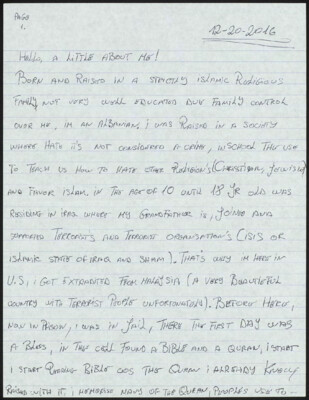 PAGE
1.
12-20-2016
Hello, A LITTLE ABOUT ME!
BORN AND RAISED IN A STRICTLY ISLAMIC RELIGIOUS
FAMILY, NOT VERY WELL EDUCATED DUE FAMILY CONTROL
OVER ME, IM AN ALBANIAN, I WAS RAISED IN A SOCIETY
WHERE HATE IT'S NOT CONSIDERED A CRIME, IN SCHOOL THEY USE
TO TEACH US HOW TO HATE OTHER RELIGION'S (CHRISTIAN, JEWISH)
AND FAVOR ISLAM. IN THE AGE OF 10 UNTIL 18 YR OLD WAS
RESIDING IN IRAQ WHERE MY GRANDFATHER IS, JOINED AND
SUPPORTED TERRORISTS AND TERRORIST ORGANISATION'S (ISIS OR
ISLAMIC STATE OF IRAQ AND SHAM). THAT'S WHY IM HERE IN
U.S, I GOT EXTRADITED FROM MALAYSIA (A VERY BEAUTIFUL
COUNTRY WITH TERRORIST PEOPLE UNFORTUNATELY). BEFORE HERE,
NOW IN PRISON, I WAS IN JAIL, THERE THE FIRST DAY WAS
A BLESS, IN THE CELL FOUND A BIBLE AND A QURAN, I START
I START READING BIBLE COS THE QURAN I ALREADY
RAISED WITH IT, I MEMORIZE MANY OF THE QURAN, PEOPLE'S USE TO